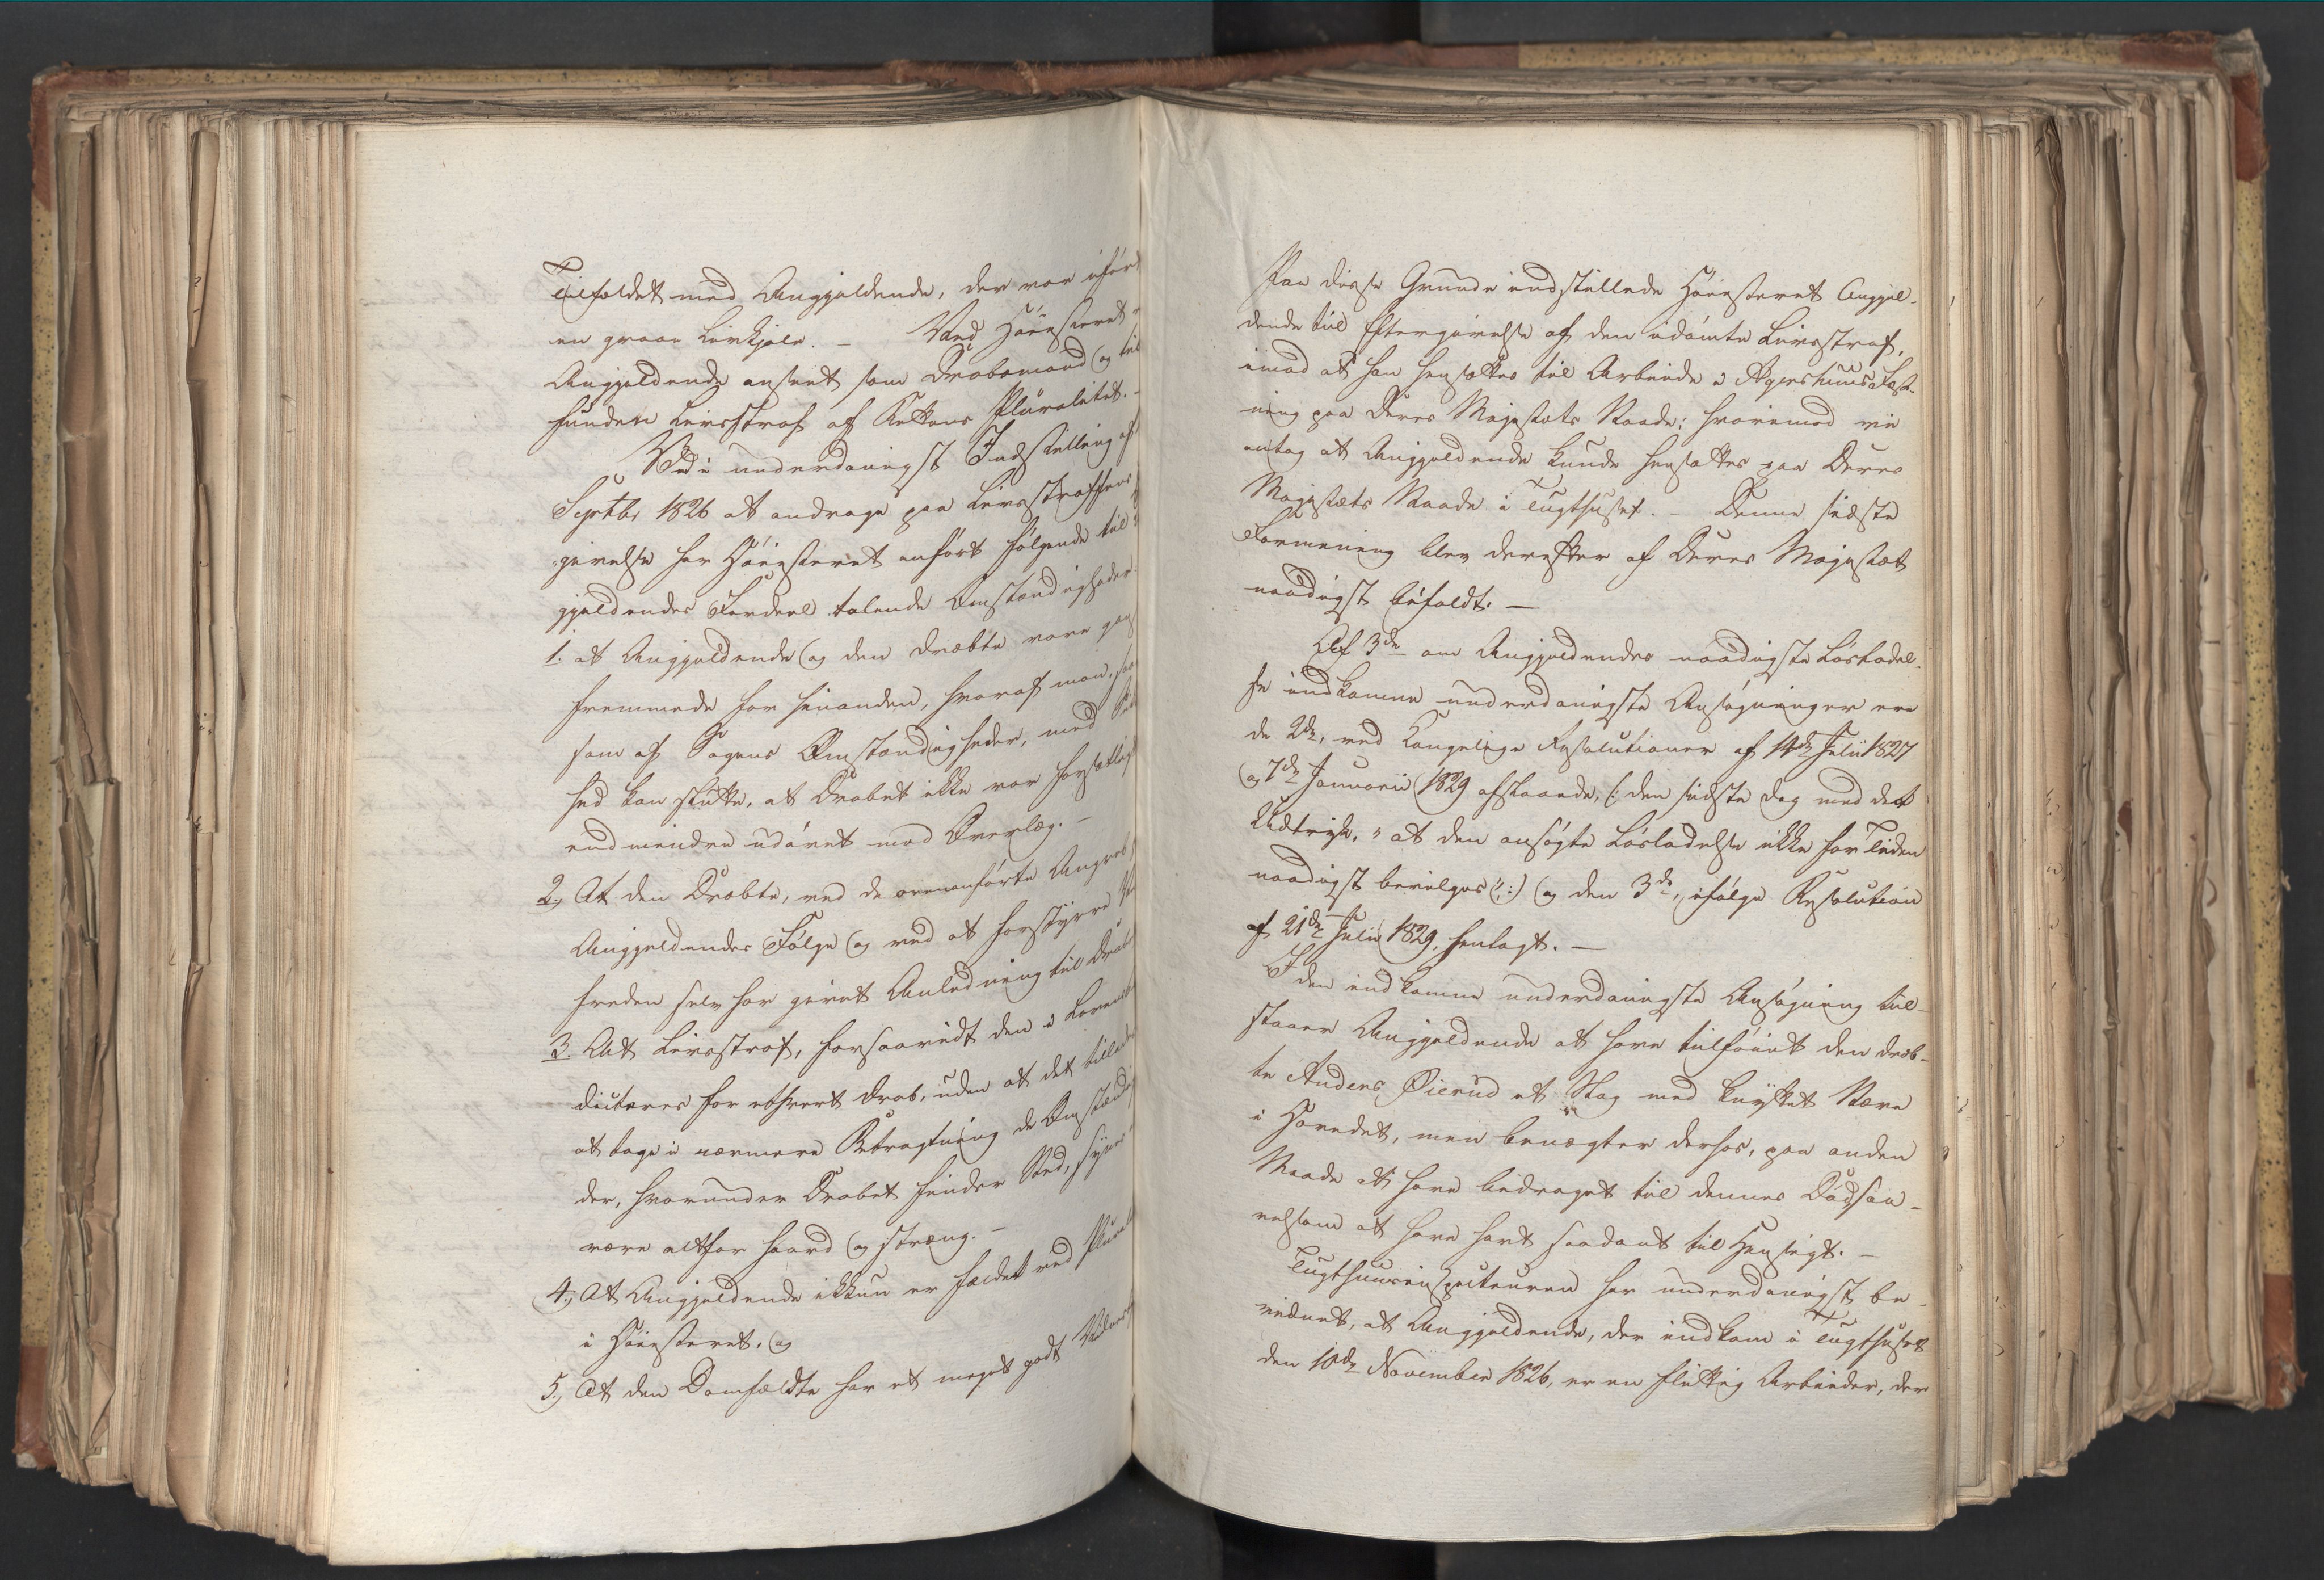 Tilfældet med Angjeldende, der var iført
en graae Livkjole. – Ved Høiesteret
Angjeldende anseet som Drabsmand og til
funden Livsstraf af Rettens Pluralitet. –
Ved i underdanigst Indstilling af
Septbr 1826 at andrage paa Livsstraffens
givelse har Høiesteret anført følgende til
gjeldendes Fordeel talende Omstændigheder
1. at Angjeldende og den dræbte vare
fremmede for hinanden, hvoraf man, saa
som af Sagens Omstændigheder, med
hed kan slutte, at Drabet ikke var forsætligt
end mindre udøvet med Overlæg. –
2, At den Dræbte, ved de ovenanførte Angreb
Angjeldendes Følge og ved at forstyrre
freden selv har givet Anledning til Drabet
3. At Livsstraf, forsaavidt den i Loven
dicteres for ethvert Drab, uden at det tillades
at tage i nærmere Betragtning de Omstændig
der, hvorunder Drabet finder Sted, synes
være altfor haard og streng. –
4, At Angjeldende ikkun er fældet ved Plural
i Høiesteret, og
5, At den Domfældte har et meget godt Vidnes
Paa disse Grunde indstillede Høiesteret Angjel-
dende til Eftergivelse af den idømte Livsstraf,
imod at han hensættes til Arbeide i Agershuus Fæst-
ning paa Deres Majestæts Naade; hvorimod vi
antog at Angjeldende kunde hensættes paa Deres
Majestæts Naade i Tugthuset. – Denne sidste
Formening blev derefter af Deres Majestæt
naadigst bifaldt. –
Af 3de om Angjeldendes naadigste Løsladel-
se indkomne underdanigste Ansøgninger ere
de 2de, ved Kongelige Resolutioner af 14de Julii 1827
og 7de Januarii 1829 afslaaede, /: den sidste dog med det
Udtryk, "at den ansøgte Løsladelse ikke for Tiden
naadigst bevilges":/ og den 3de, ifølge Resolution
af 21de Julii 1829, henlagt. –
I den indkomne underdanigste Ansøgning til-
staaer Angjeldende at have tilføiet den dræb-
te Anders Øierud et Slag med knyttet Næve
i Hovedet, men benægter derhos, paa anden
Maade at have bidraget til dennes Død saa-
velsom at have havt saadant til Hensigt. –
Tugthuusinspecteuren har underdanigst be-
vidnet, at Angjeldende, der indkom i Tugthuset
den 10de November 1826, er en flittig Arbeider, der